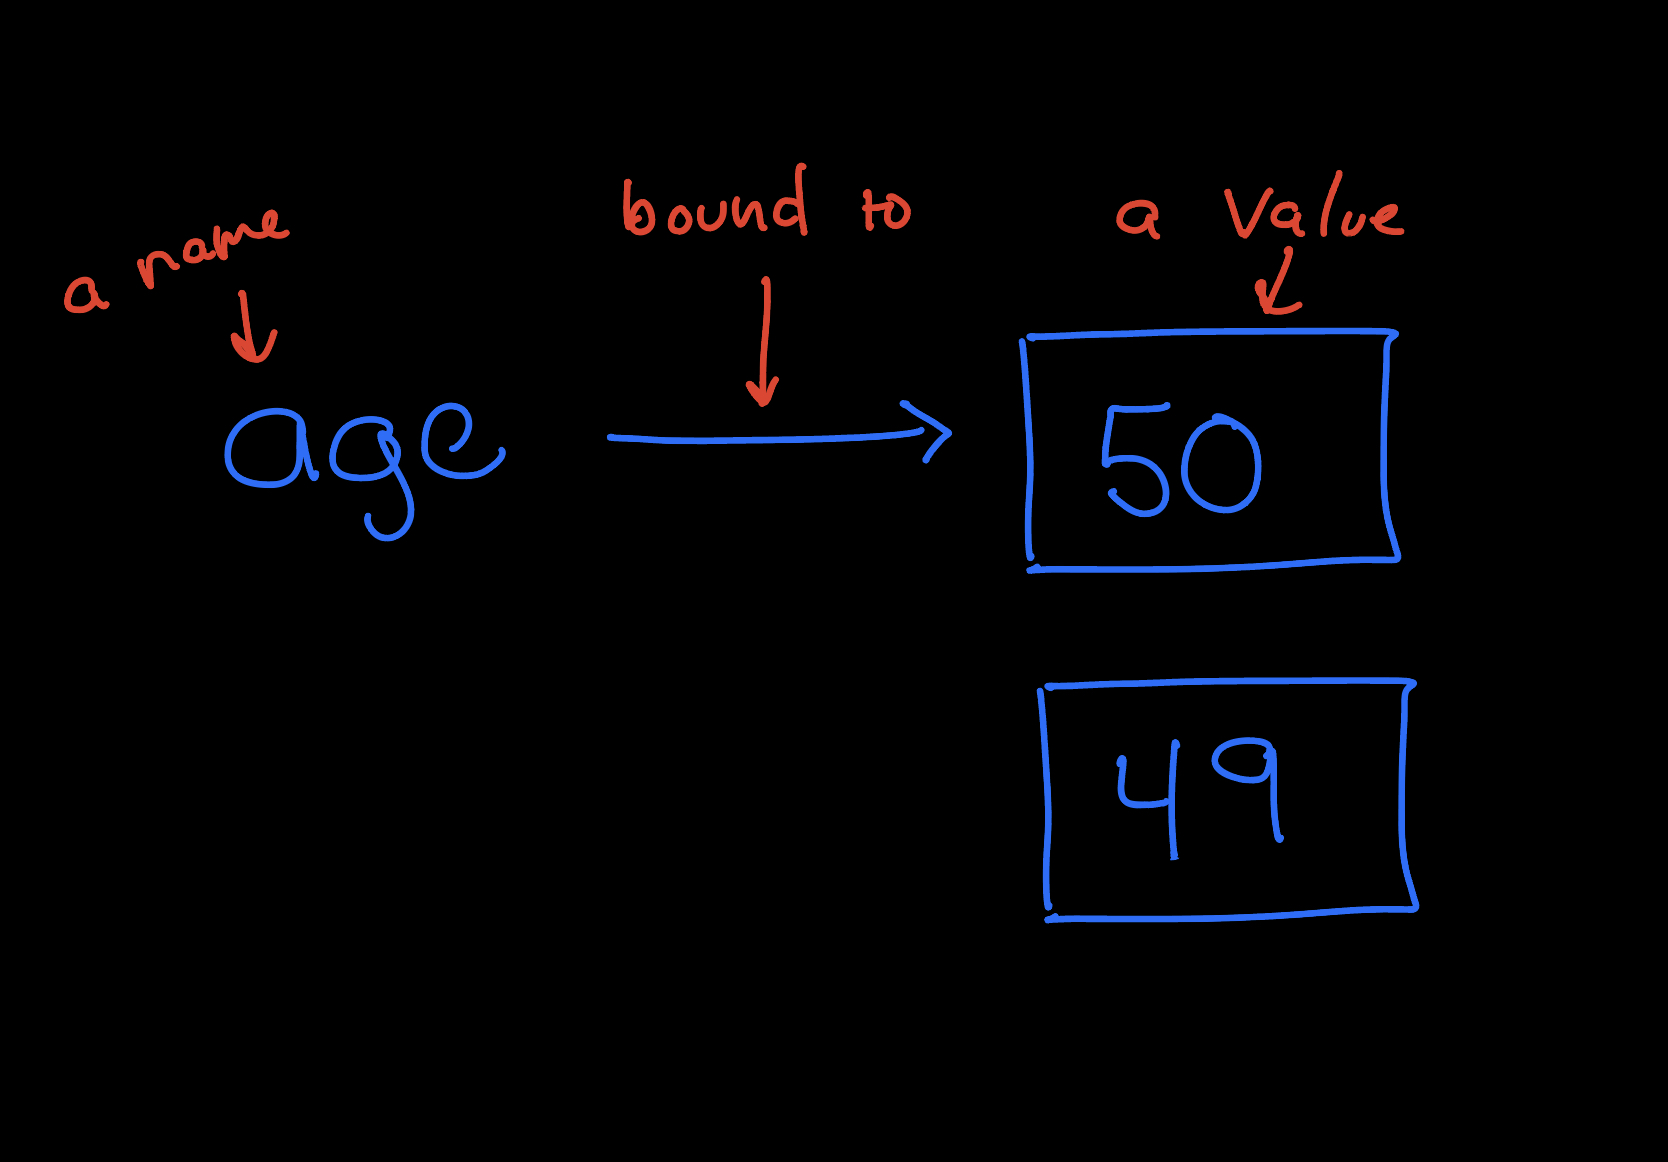 a name
bound to
a value
age
50
49